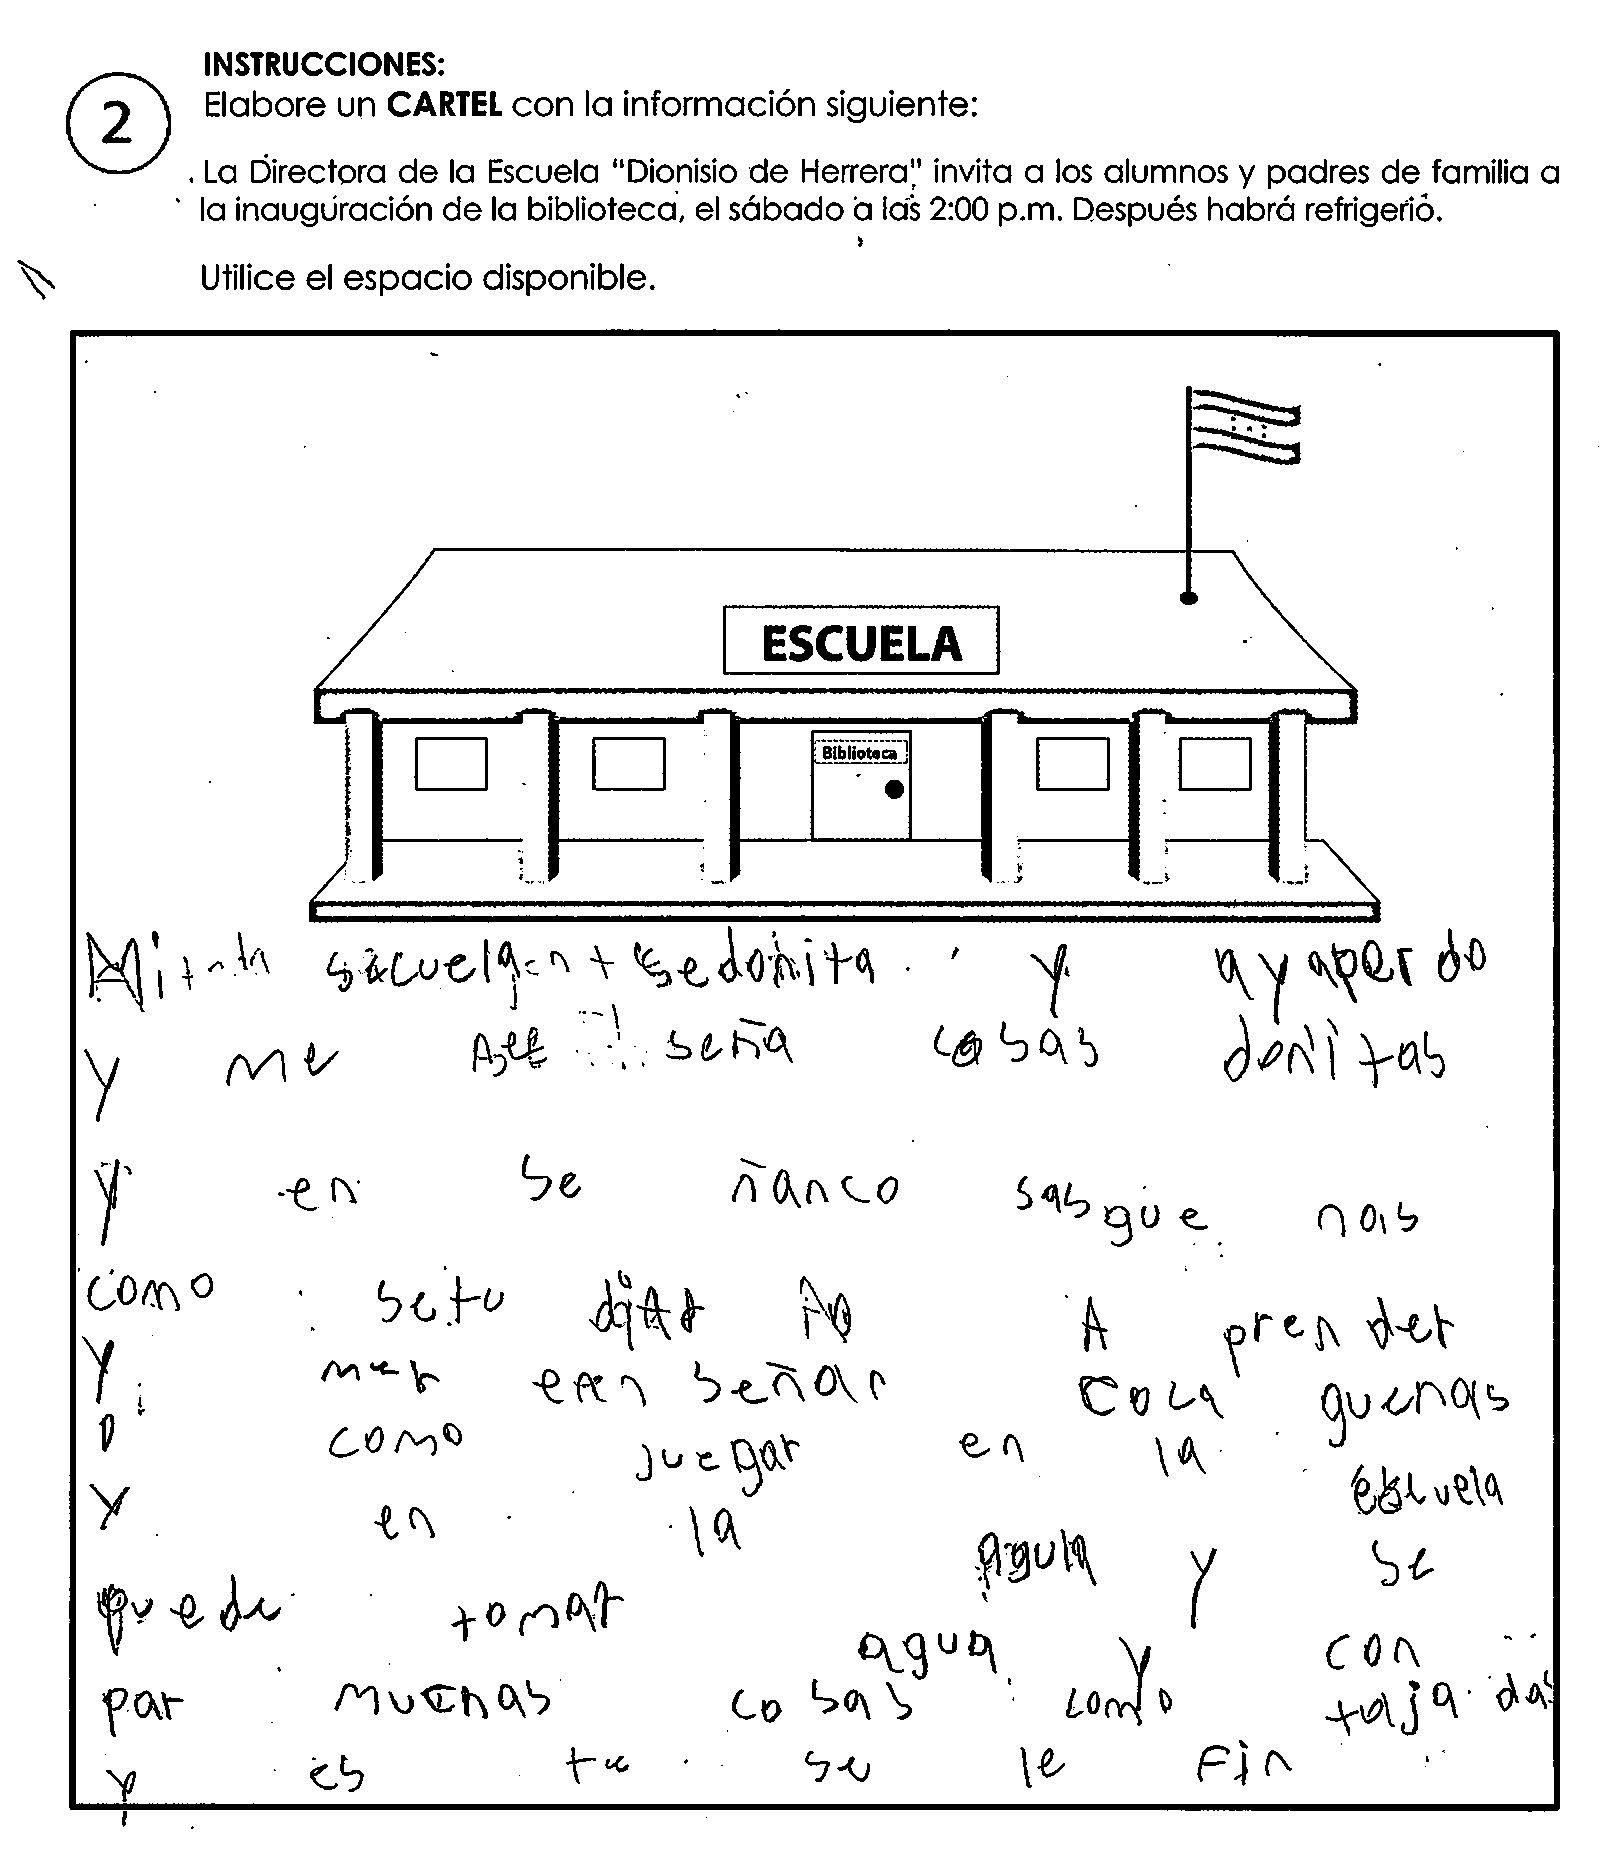 INSTRUCCIONES:
2
Elabore un CARTEL con la información siguiente:
La Directora de la Escuela "Dionisio de Herrera", invita a los alumnos y padres de familia a
la inauguración de la biblioteca, el sábado a las 2:00 p.m. Después habrá refrigerio.
Utilice el espacio disponible.
ESCUELA
Biblioteca
y ayaperdo
y me seña cosas donitas
y en se ñanco sasque nos
como setu A prender
y mer señar coca guenas
o como juegar en la escuela
y en la agula y se
puede tomar agua y con
par muchas cosas como tajadas
y es te se le Fin